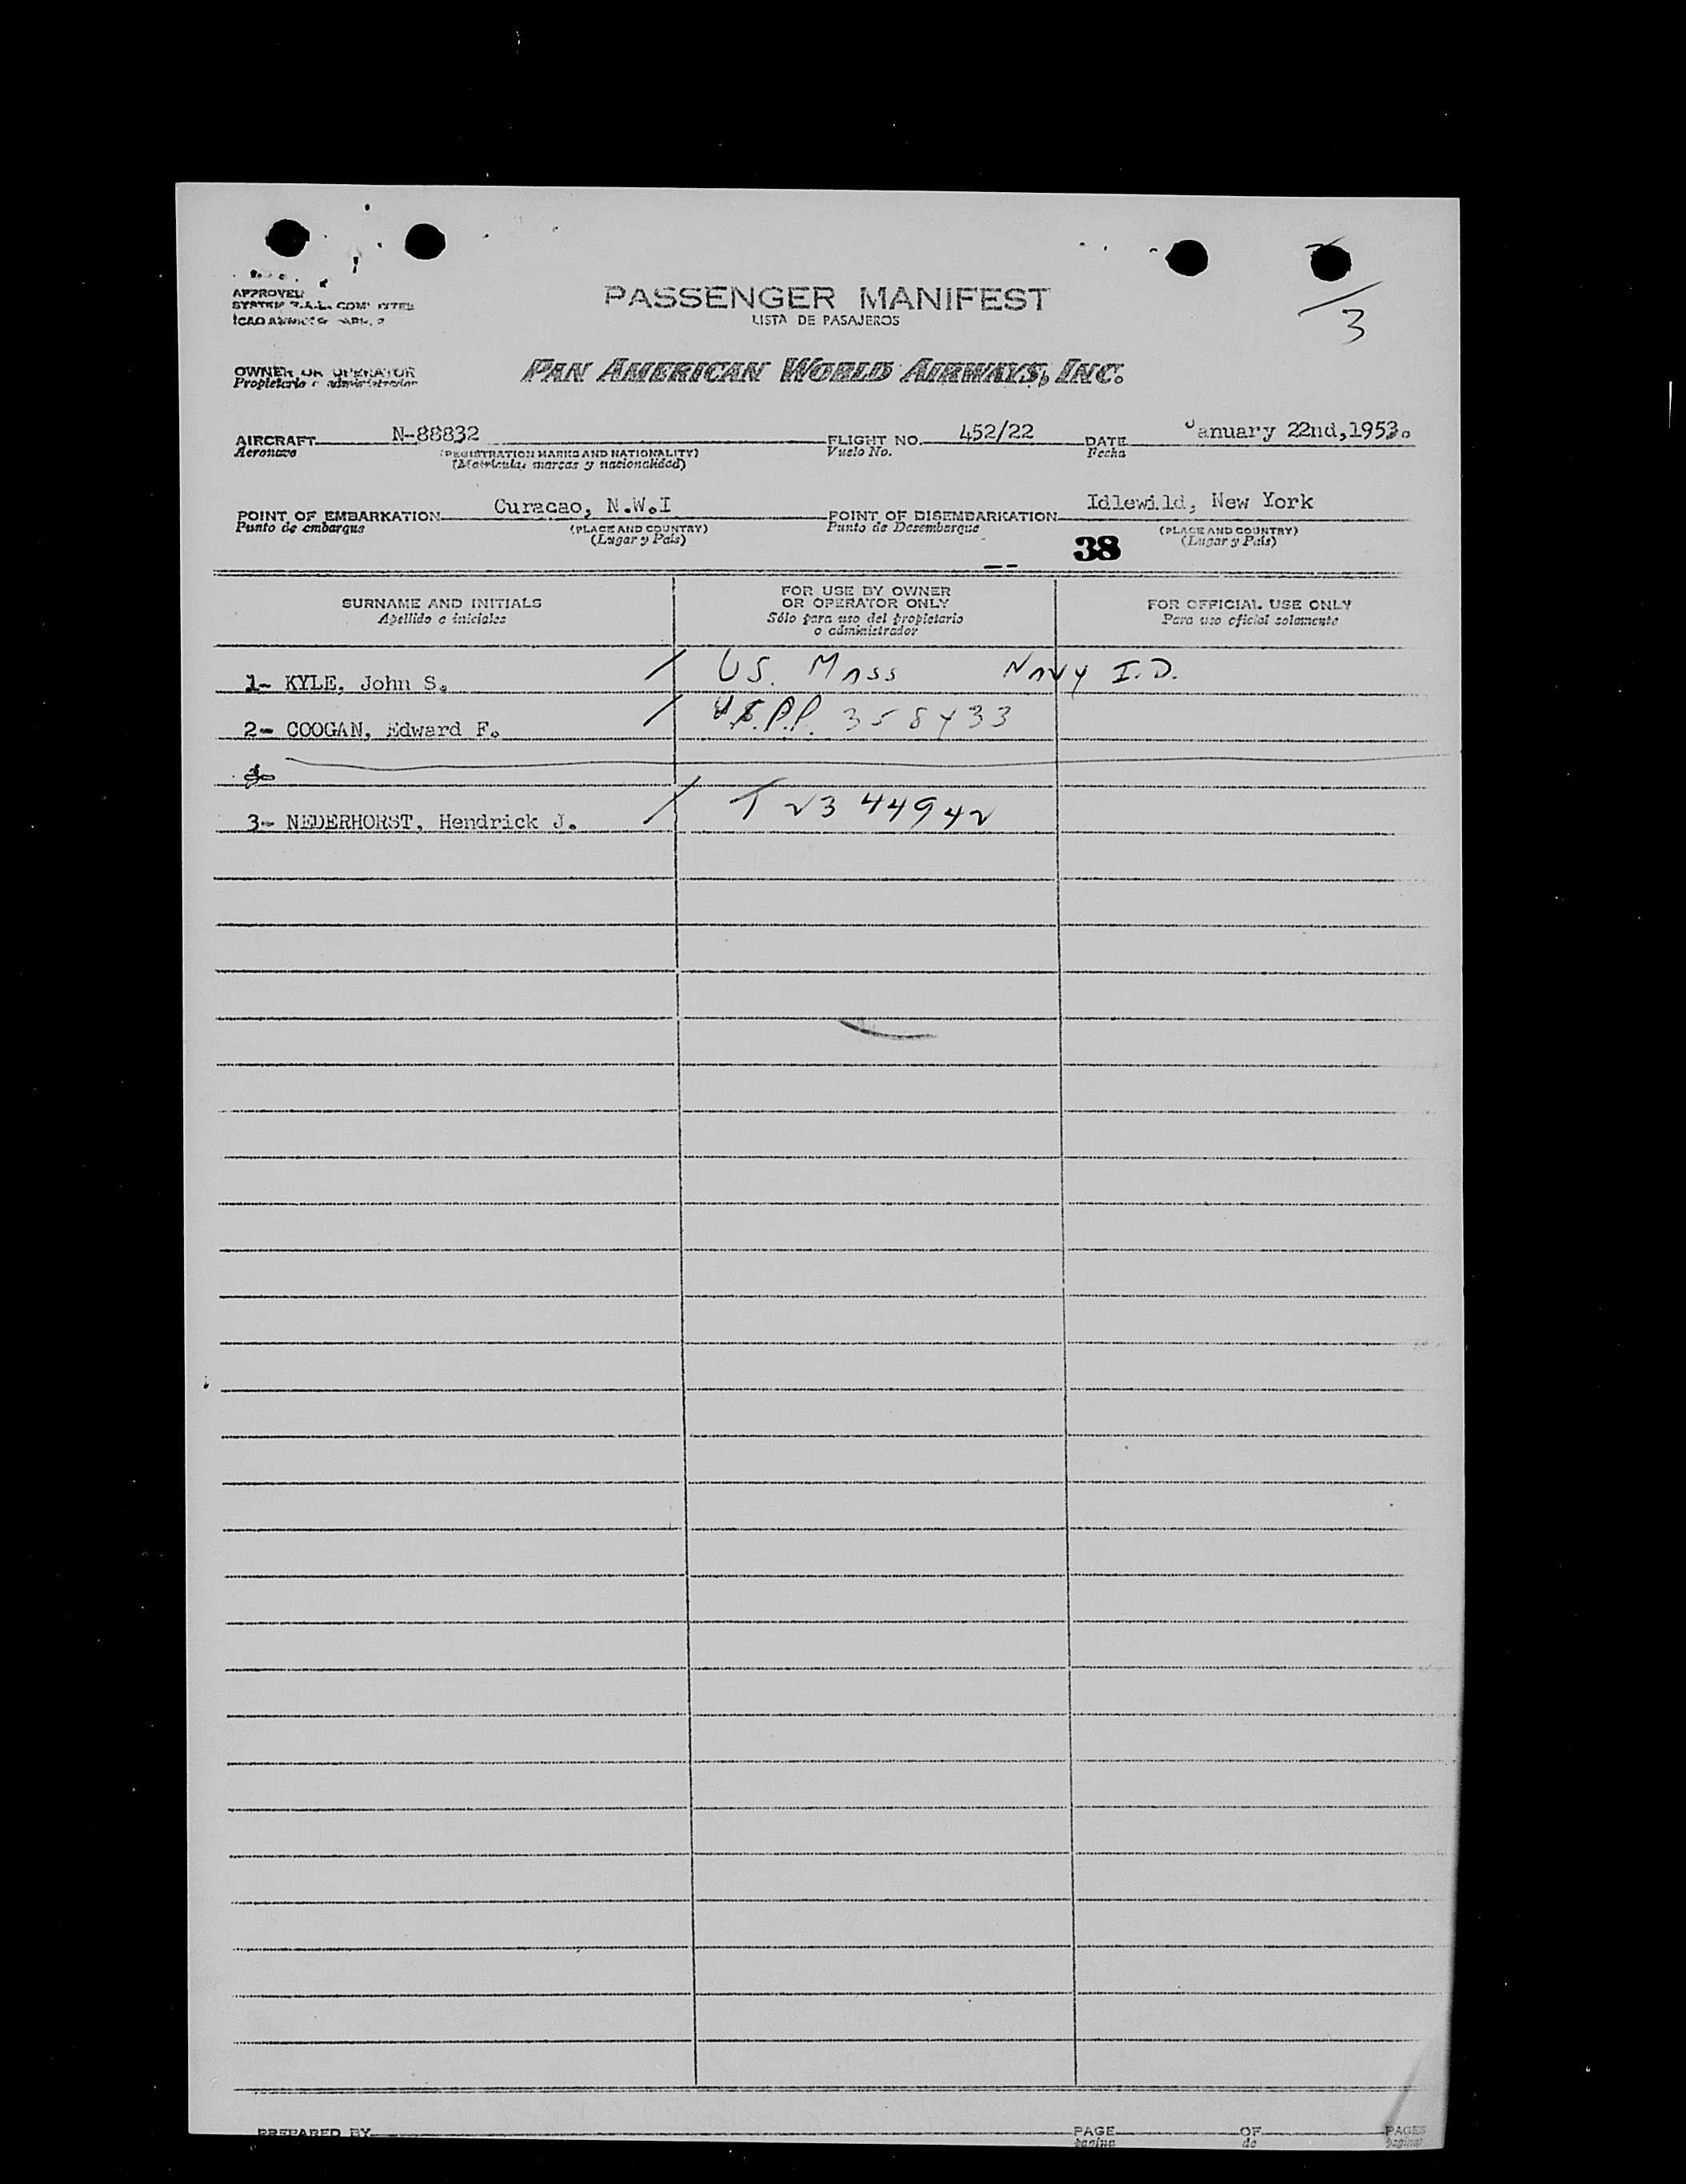 APPROVED
PASSENGER MANIFEST
LISTA DE PASAJEROS
3
OWNER OR OPERATOR
Propietario o administrador
PAN AMERICAN WORLD AIRWAYS, INC.
AIRCRAFT N-88832 FLIGHT NO. 452/22 DATE January 22nd,1953.
Aeronave (REGISTRATION MARKS AND NATIONALITY) Vuelo No. Fecha
(Matricula, marcas y nacionalidad)
POINT OF EMBARKATION Curacao, N.W.I POINT OF DISEMBARKATION Idlewild, New York
Punto de embarque (PLACE AND COUNTRY) Punto de Desembarque (PLACE AND COUNTRY)
(Lugar y País) (Lugar y País)
38
SURNAME AND INITIALS
Apellido e iniciales
FOR USE BY OWNER
OR OPERATOR ONLY
Sólo para uso del propietario
o administrador
FOR OFFICIAL USE ONLY
Para uso oficial solamente
1- KYLE, John S. / US. MASS NAVY I.D.
2- COOGAN, Edward F. / U.S.P.P. 358433
3- NEDERHORST, Hendrick J. / T 2344942
PREPARED BY PAGE OF PAGES
pagina de paginas